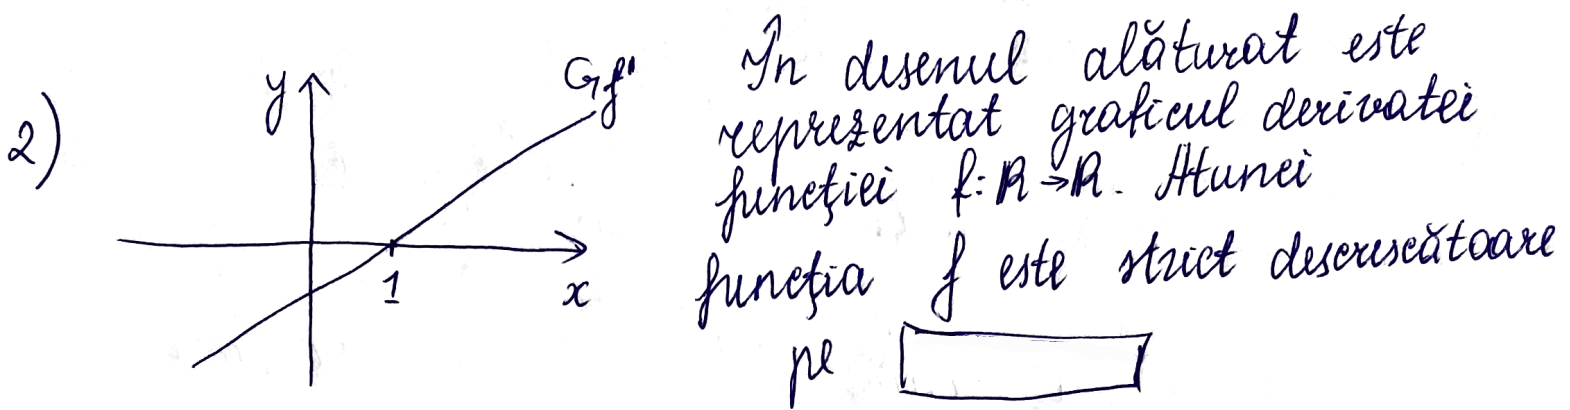 2)
y
G f'
1
x
În desenul alăturat este
reprezentat graficul derivatei
funcţiei f: R → R. Atunci
funcţia f este strict descrescătoare
pe